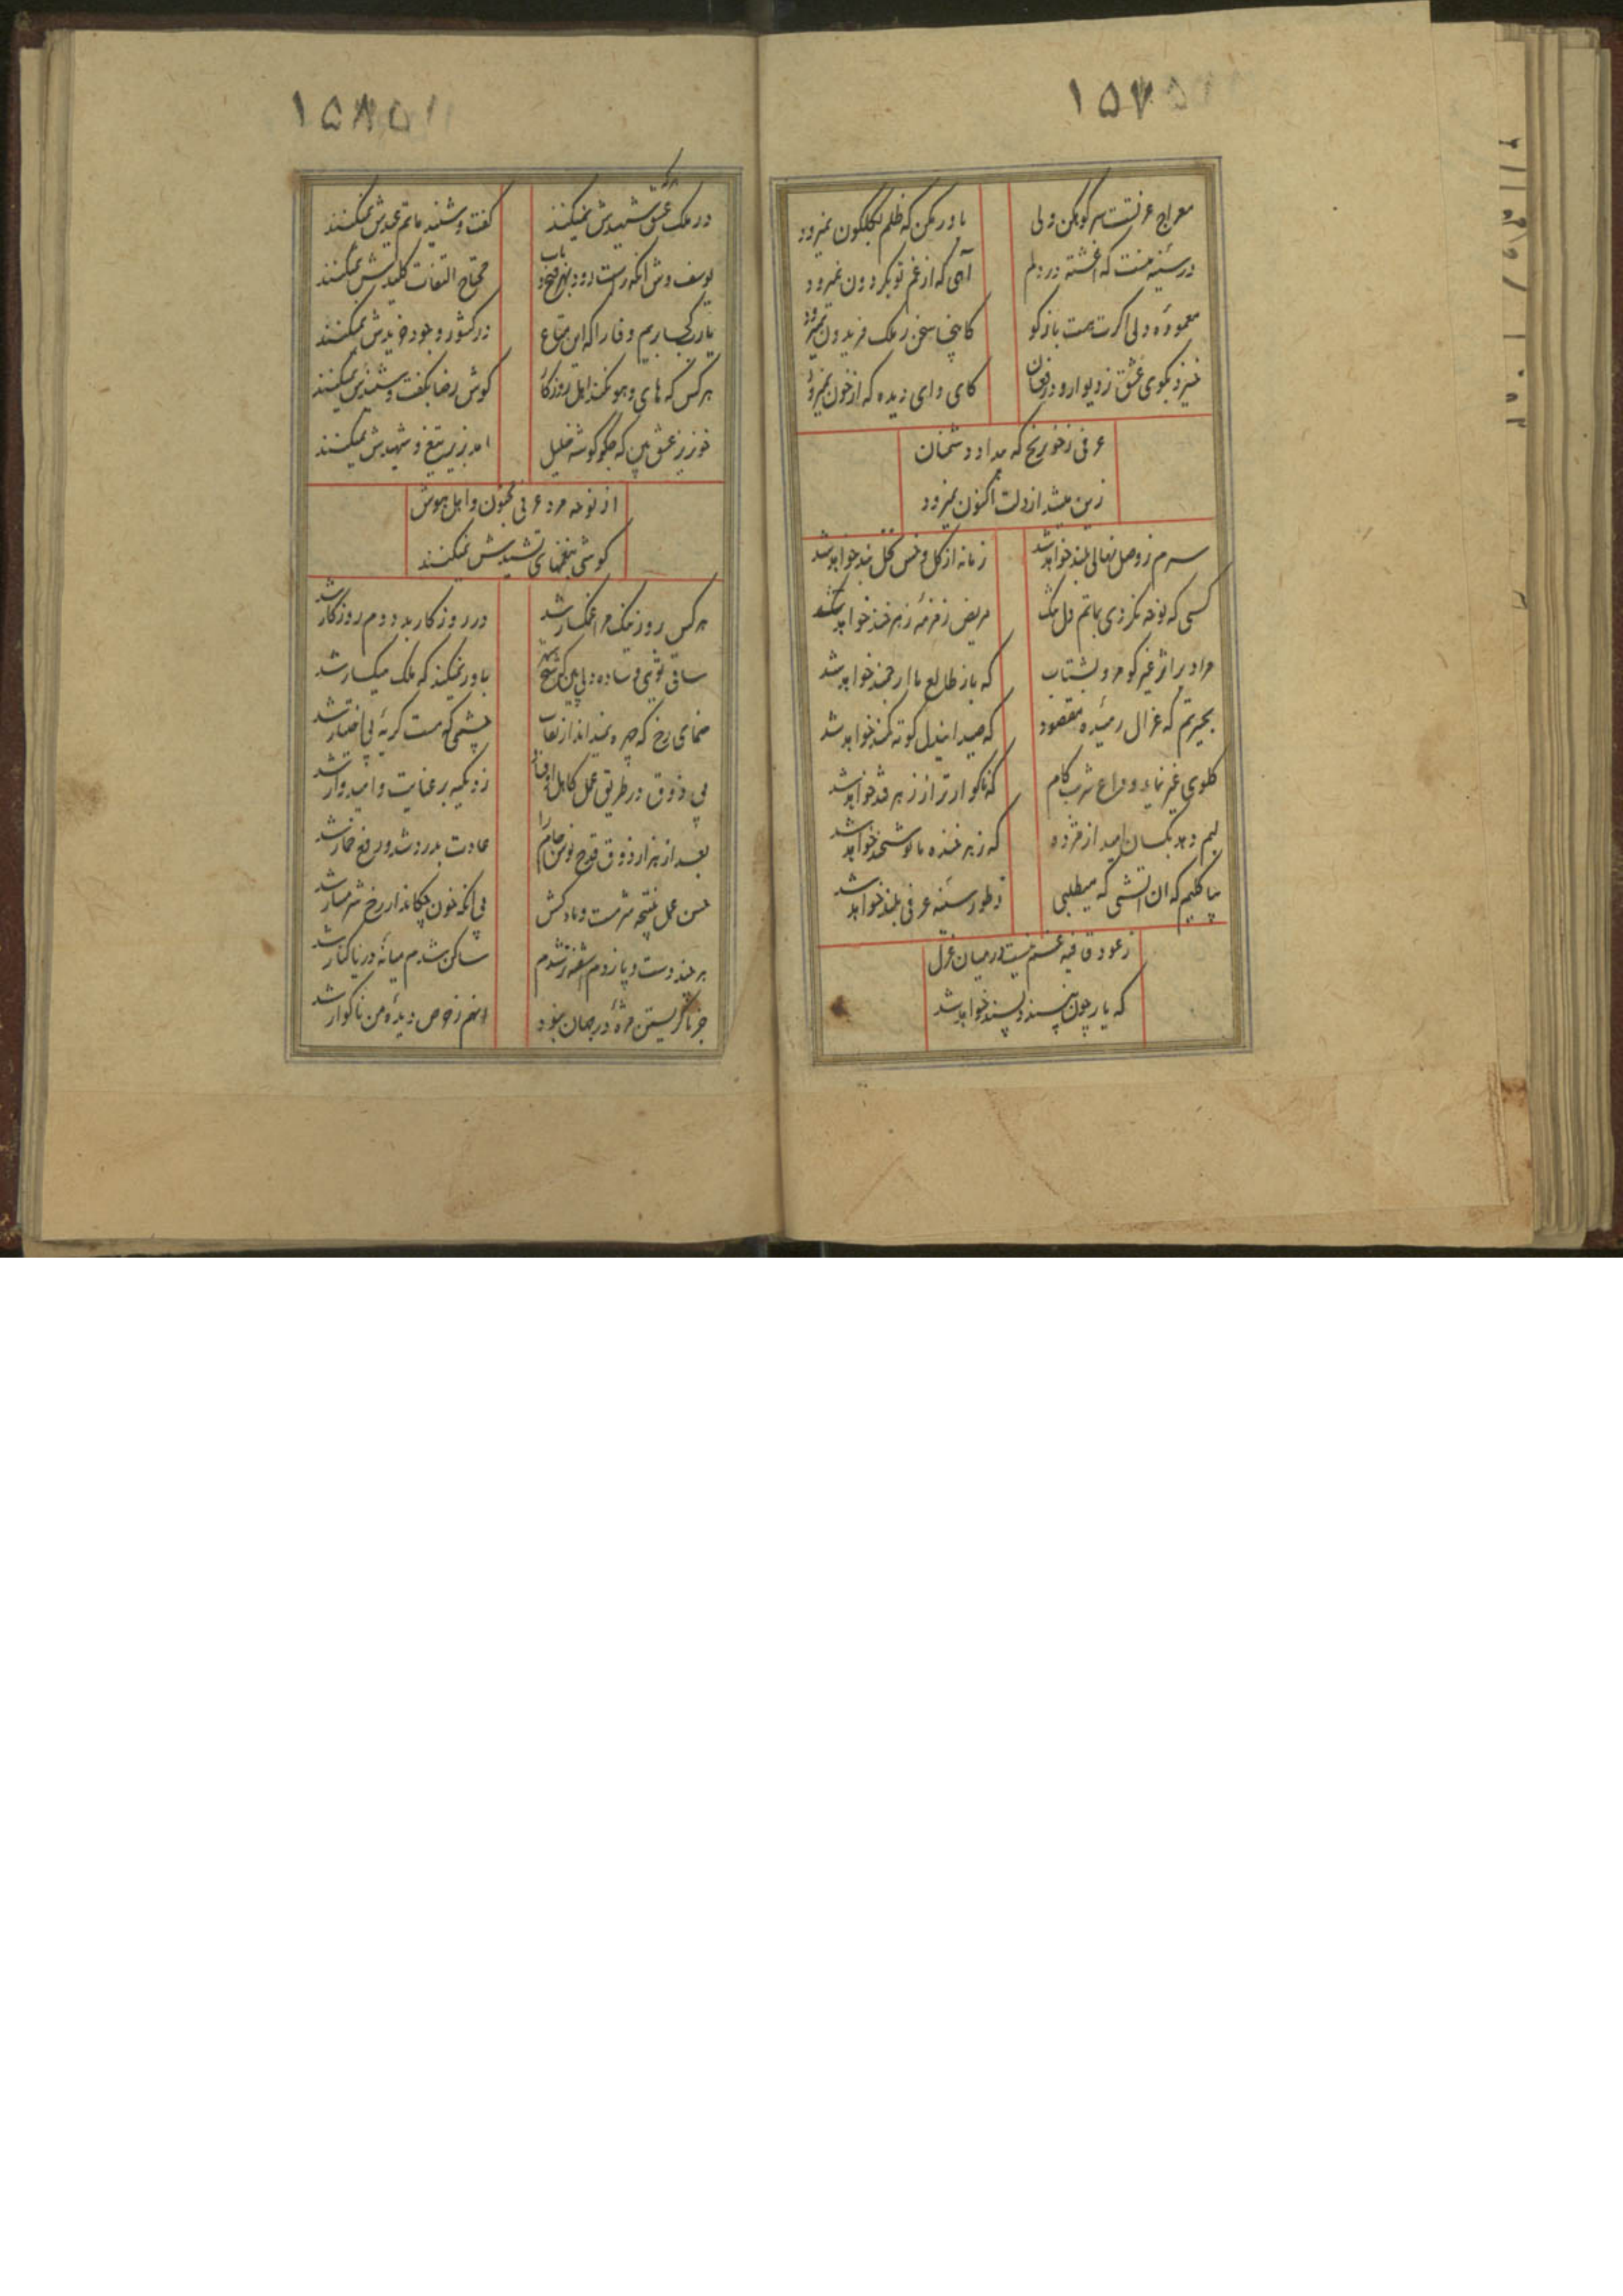 ۱۵۷
معراج عزتست سر کوهکن ولی
باور مکن که ظلم بگلگون نمیرود
در سینه منست که آغشته در دلم
آهی که از غم تو بگردون نمیرود
معموره دلی اگرت هست بازگو
کانجا سخن ز ملک فریدون نمیرود
خیزد بکوی عشق ز دیوار و در فغان
کای وای دیده که ازو خون نمیرود
عرفی ز خو برنج که مداد دشمنان
زین میشد از دلت اکنون نمیرود
سرم ز وصل نهالی بلند خواهد شد
زمانه از گل و خس نخل بند خواهد شد
کسی که نوحه نکردی بماتم دل تنگ
مریض زمزمه زهرخند خواهد شد
مراد بر اثر غیر کو مرو بشتاب
که باز طالع ما ارجمند خواهد شد
بحیرتم که غزال رمیده مقصود
که صید این دل کوته کمند خواهد شد
گلوی غیر نماید وداع شربت کام
که ناگوارتر از زهر قند خواهد شد
لبم دهد بکسان امید از مژده
که زهر خنده ما نوشخند خواهد شد
بیا کلیم که آن آتشی که میطلبی
ز طور سینه عرفی بلند خواهد شد
ز عود قافیه غم نیست در میان غزل
که یار چون بپسندد پسند خواهد شد
۱۵۸
در ملک عشق شهیدش نمیکنند
گفت و شنید ماتم عیدش نمیکنند
یوسف وش آنکه راست رود بهر فتح باب
محتاج التفات کلیدش نمیکنند
یارب کجا بریم وفا را که این متاع
در کشور وجود خریدش نمیکنند
هر کس که های و هو نکند اهل روزگار
گوش رضا بگفت و شنیدش نمیکنند
خونریز عشق بین که جگرگوشه خلیل
آمد بزیر تیغ و شهیدش نمیکنند
از نوحه مرد عرفی مجنون و اهل هوش
گوشی بنغمهای نشیدش نمیکنند
هر کس بروز نیک مرا غمگسار شد
در روزگار بد دوم روزگار شد
ساقی تویی و ساده دلی بین که شیخ شهر
باور نمیکند که ملک میگسار شد
بنمای رخ که چهره نمیداند از نقاب
چشمی که مست گریه بی اختیار شد
بی ذوق در طریق عمل کاهل اوفتاد
زد تکیه بر عنایت و امیدوار شد
بعد از هزار ذوق قدح نوش جام را
عادت بدرد شد و رفع خمار شد
حسن عمل نتیجه شرمست و بادکش
بی آنکه خون چکاند از رخ شرمسار شد
هر چند دست و پا زدم آشفته تر شدم
ساکن شدم میانه دریا کنار شد
جز ناگریستن مژه در جهان نبود
آنهم ز حرص دیده من ناگوار شد